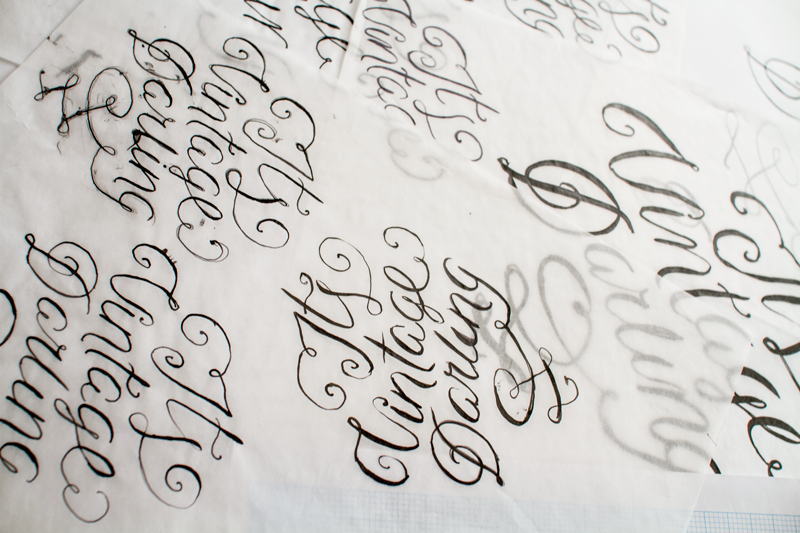 Its
Vintage
Darling
Its
Vintage
Darling
Its
Vintage
Darling
Its
Vintage
Its
Vint
Darling